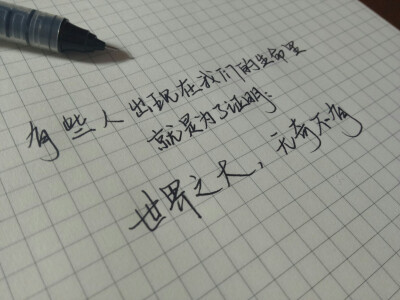 有些人出现在我们的生命里
就是为了证明：
世界之大，无奇不有